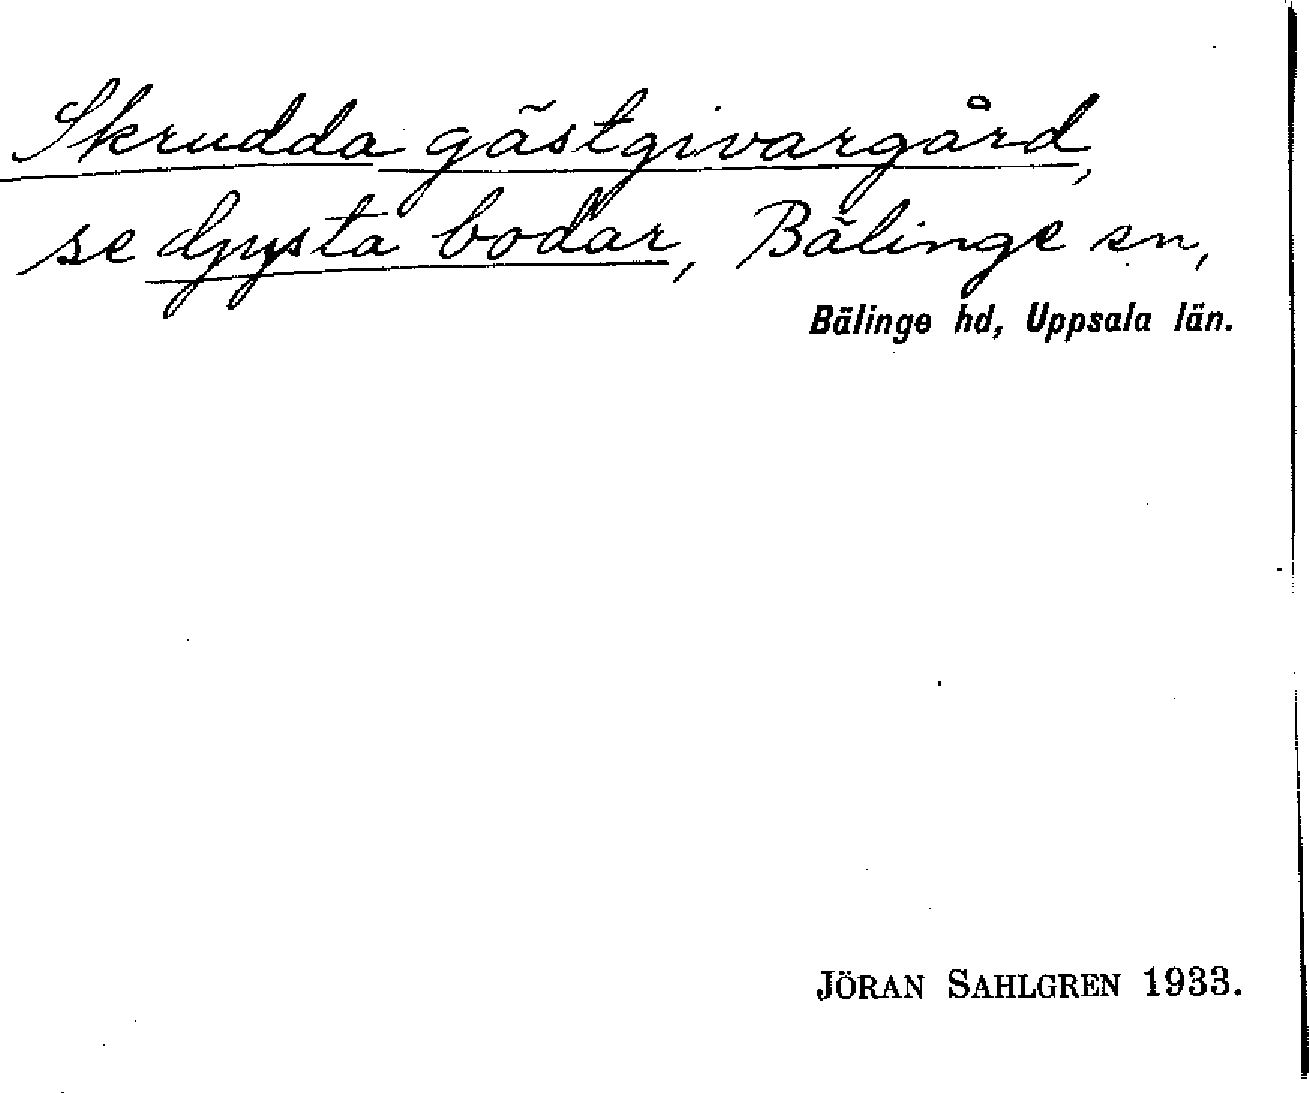 Skrudda gästgivargård,
se Ljysta bodar, Bälinge sn,
Bälinge hd, Uppsala län.
JÖRAN SAHLGREN 1933.